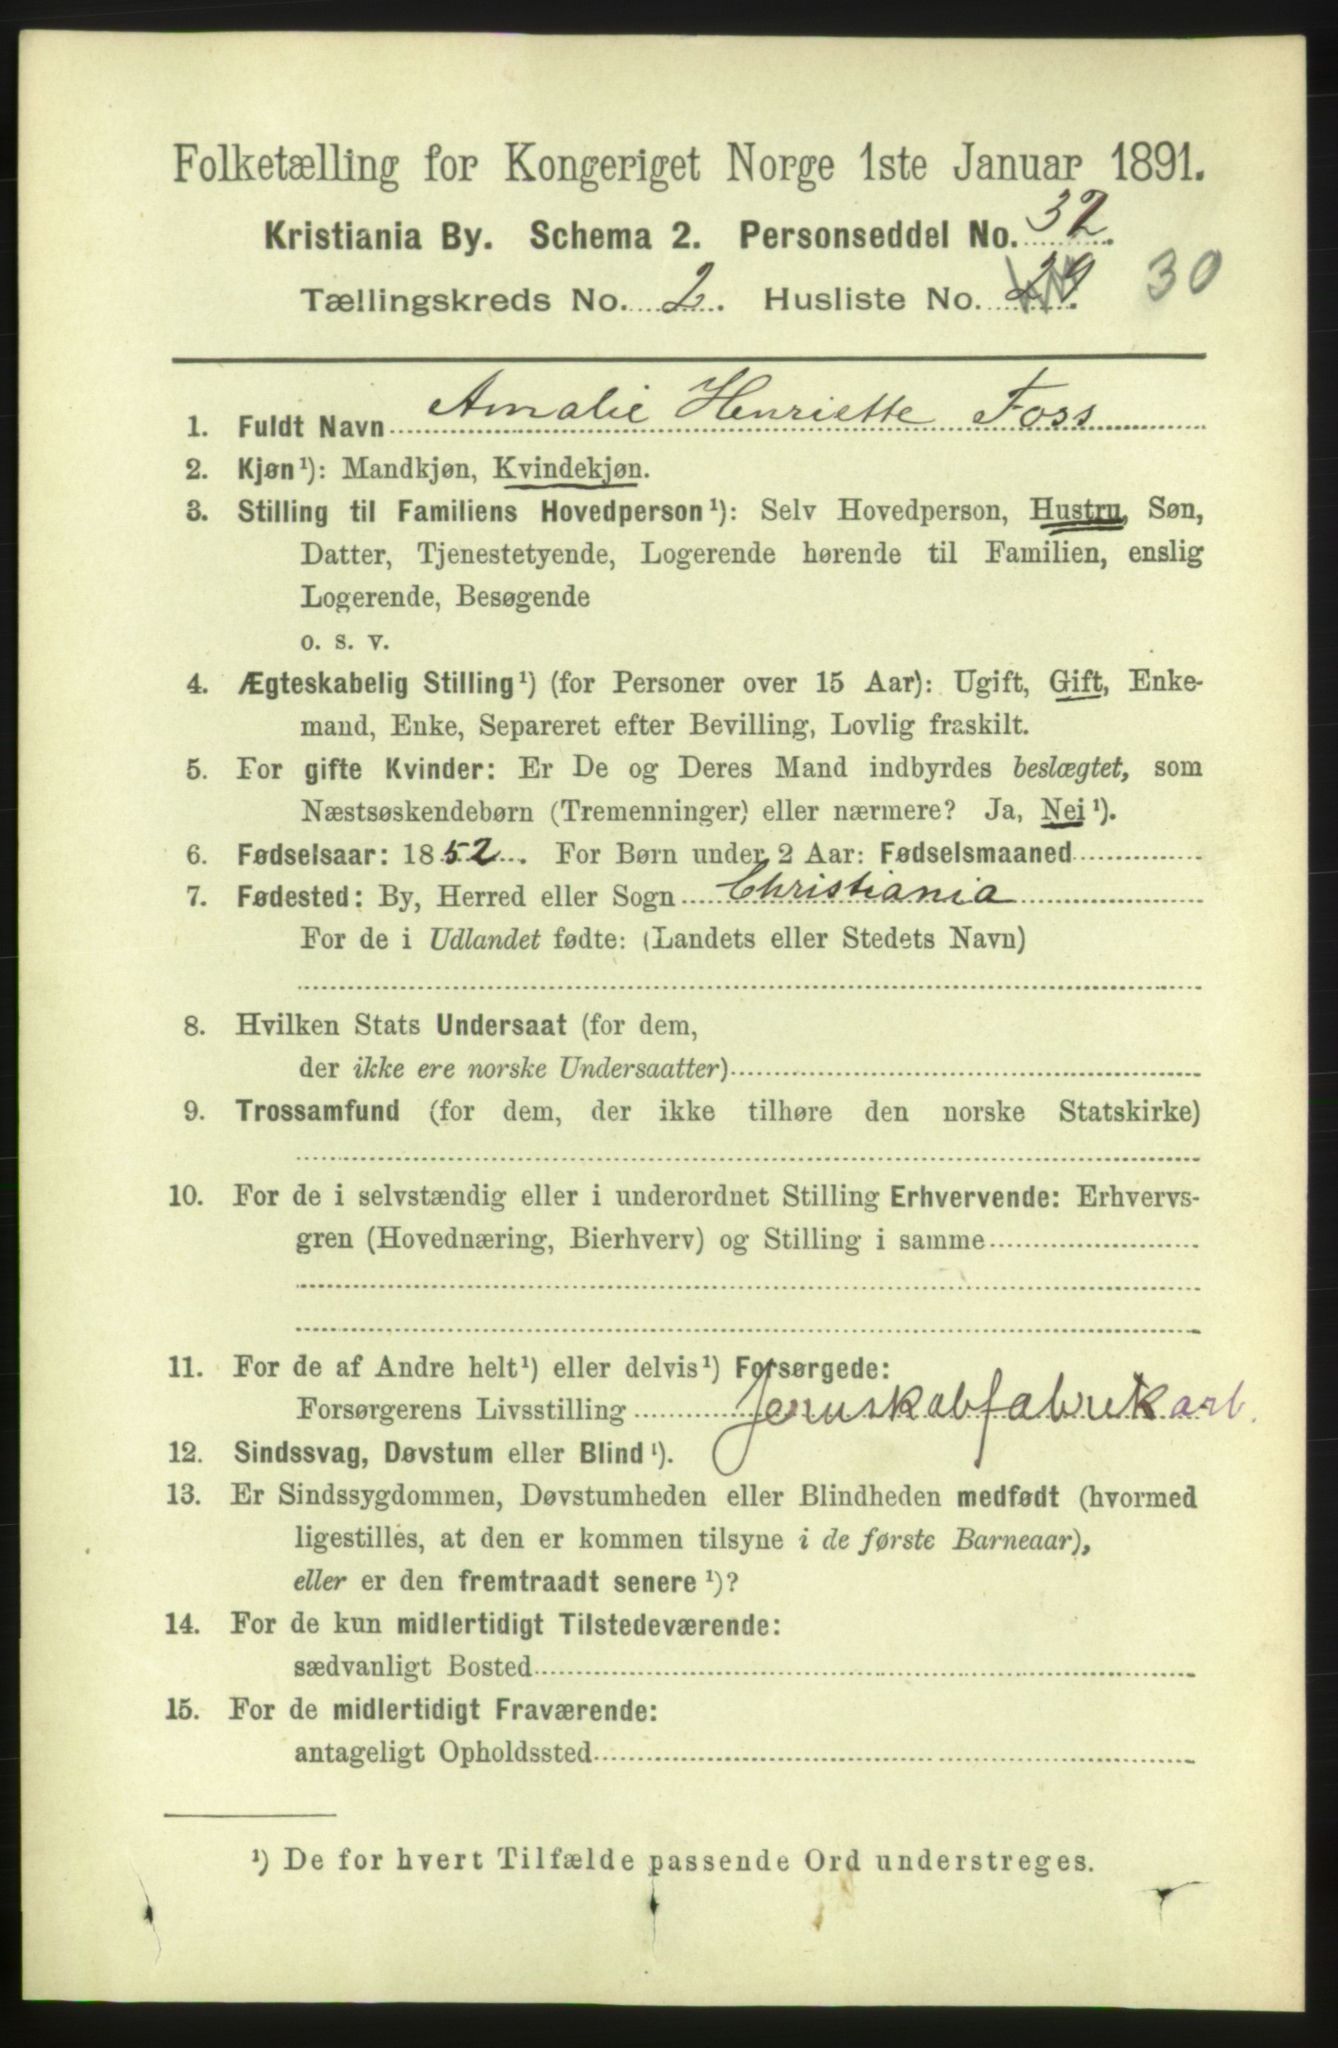 Folketælling for Kongeriget Norge 1ste Januar 1891.
Kristiania By. Schema 2. Personseddel No. 32.
Tællingskreds No. 2. Husliste No. 29. 30
1. Fuldt Navn Amalie Henriette Foss
2. Kjøn¹): Mandkjøn, Kvindekjøn.
3. Stilling til Familiens Hovedperson¹): Selv Hovedperson, Hustru, Søn,
Datter, Tjenestetyende, Logerende hørende til Familien, enslig
Logerende, Besøgende
o. s. v.
4. Ægteskabelig Stilling¹) (for Personer over 15 Aar): Ugift, Gift, Enke-
mand, Enke, Separeret efter Bevilling, Lovlig fraskilt.
5. For gifte Kvinder: Er De og Deres Mand indbyrdes beslægtet, som
Næstsøskendebørn (Tremenninger) eller nærmere? Ja, Nei¹).
6. Fødselsaar: 1852. For Børn under 2 Aar: Fødselsmaaned
7. Fødested: By, Herred eller Sogn Christiania
For de i Udlandet fødte: (Landets eller Stedets Navn)
8. Hvilken Stats Undersaat (for dem,
der ikke ere norske Undersaatter)
9. Trossamfund (for dem, der ikke tilhøre den norske Statskirke)
10. For de i selvstændig eller i underordnet Stilling Erhvervende: Erhvervs-
gren (Hovednæring, Bierhverv) og Stilling i samme
11. For de af Andre helt¹) eller delvis¹) Forsørgede:
Forsørgerens Livsstilling Jernskabfabrikarb.
12. Sindssvag, Døvstum eller Blind¹).
13. Er Sindssygdommen, Døvstumheden eller Blindheden medfødt (hvormed
ligestilles, at den er kommen tilsyne i de første Barneaar),
eller er den fremtraadt senere¹)?
14. For de kun midlertidigt Tilstedeværende:
sædvanligt Bosted
15. For de midlertidigt Fraværende:
antageligt Opholdssted
¹) De for hvert Tilfælde passende Ord understreges.